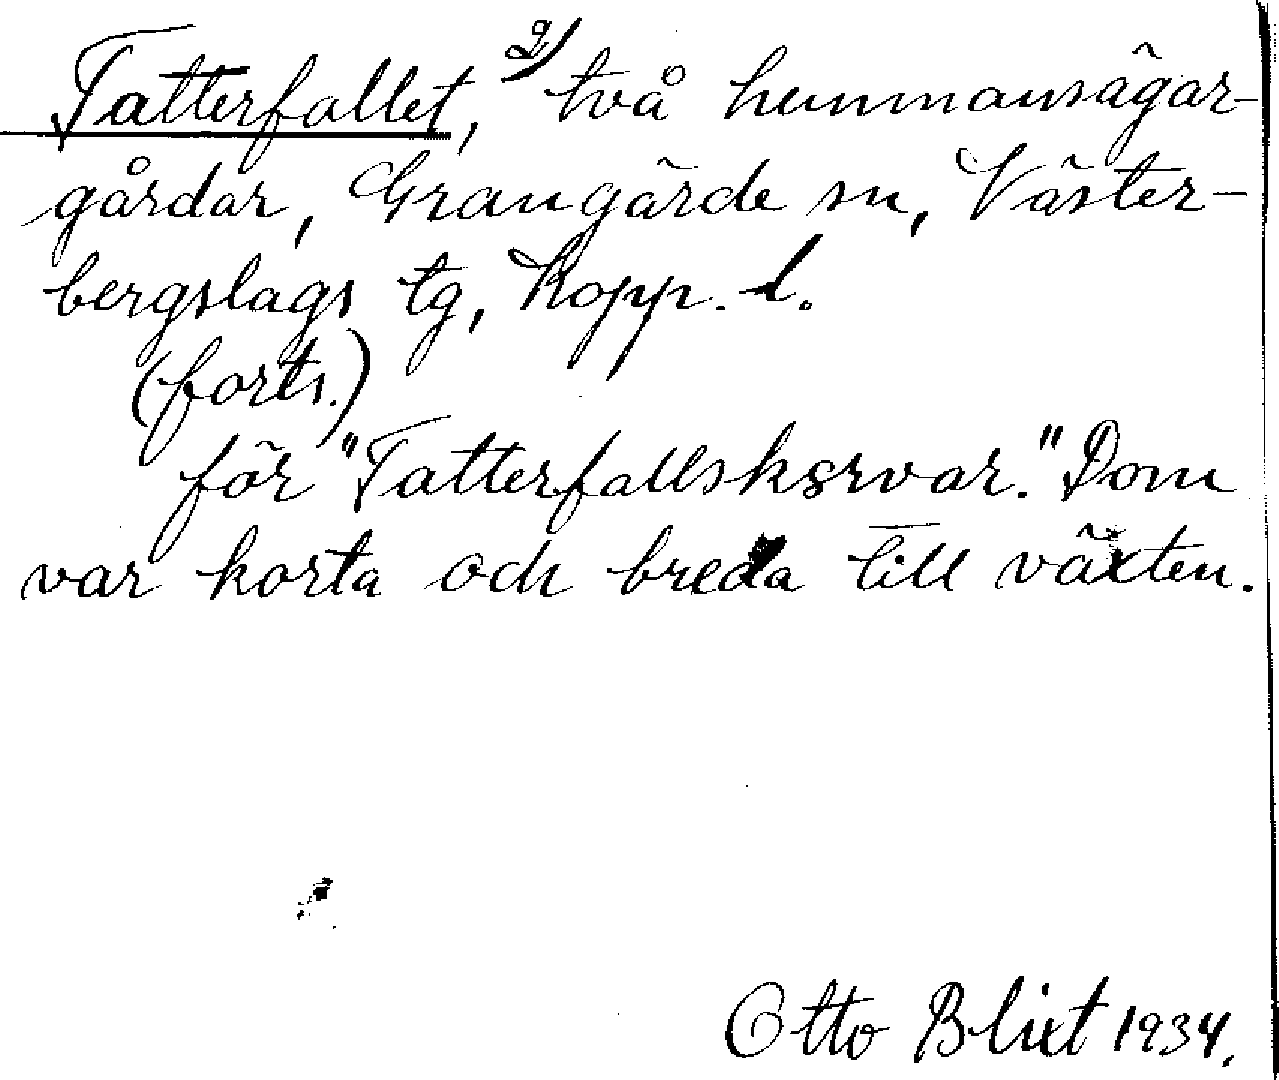 Tatterfallet, 2) två hemmansägar-
gårdar, Grangärde sn, Väster-
bergslags tg, Kopp. l.
(forts.)
för "Tatterfallskorvar." Dom
var korta och breda till växten.
Otto Blixt 1934.